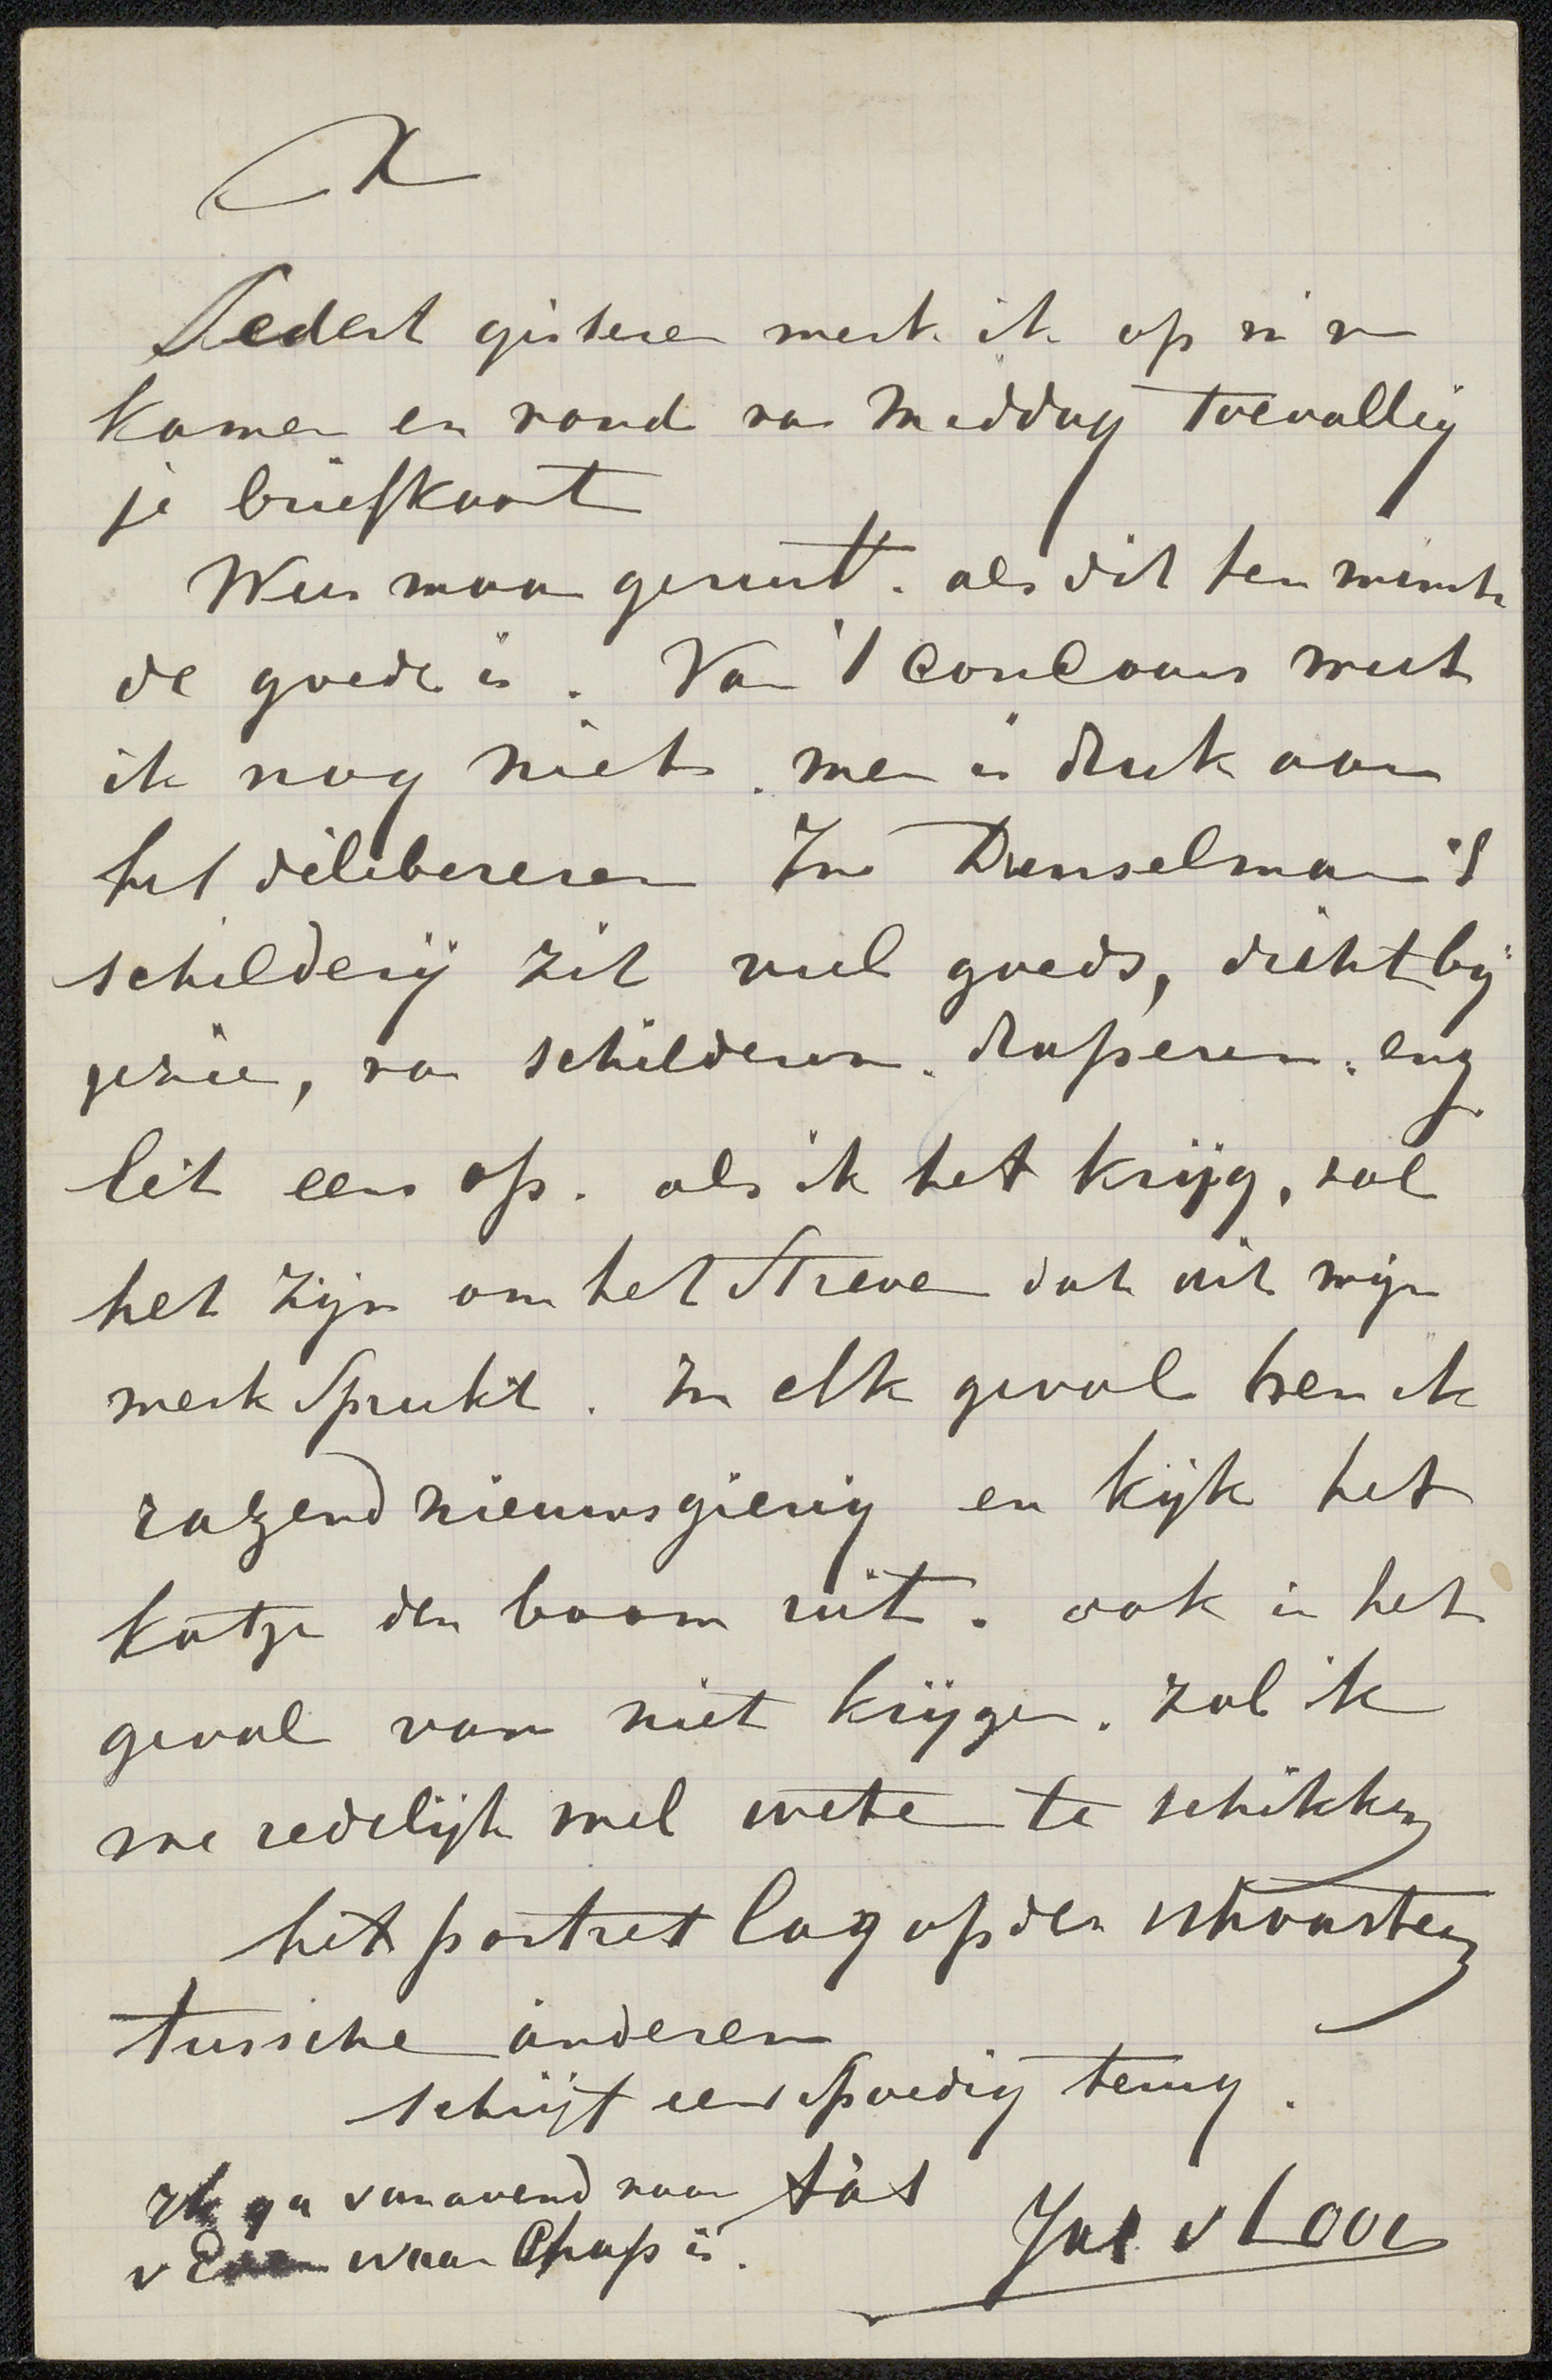 A
Sedert gisteren werk ik op m'n
kamer en vond van middag toevallig
je briefkaart
Wees maar gerust. als dit ten minste
de goede is. Van 't concours weet
ik nog niets. men is druk aan
het delibereren In Dunselman's
schilderij zit veel goeds, dichtbij
gezien, van schilderen. draperen. enz
let eens op. als ik het krijg, zal
het zijn om het streven dat uit mijn
werk spreekt. In elk geval ben ik
razend nieuwsgierig en kijk het
katje den boom uit. ook in het
geval van niet krijgen. zal ik
me redelijk wel weten te schikken
het portret lag op den schoorsteen
tusschen anderen
schrijf eens spoedig terug.
Ik ga vanavond naar
v Even waar Chap is.
Jac v Looy